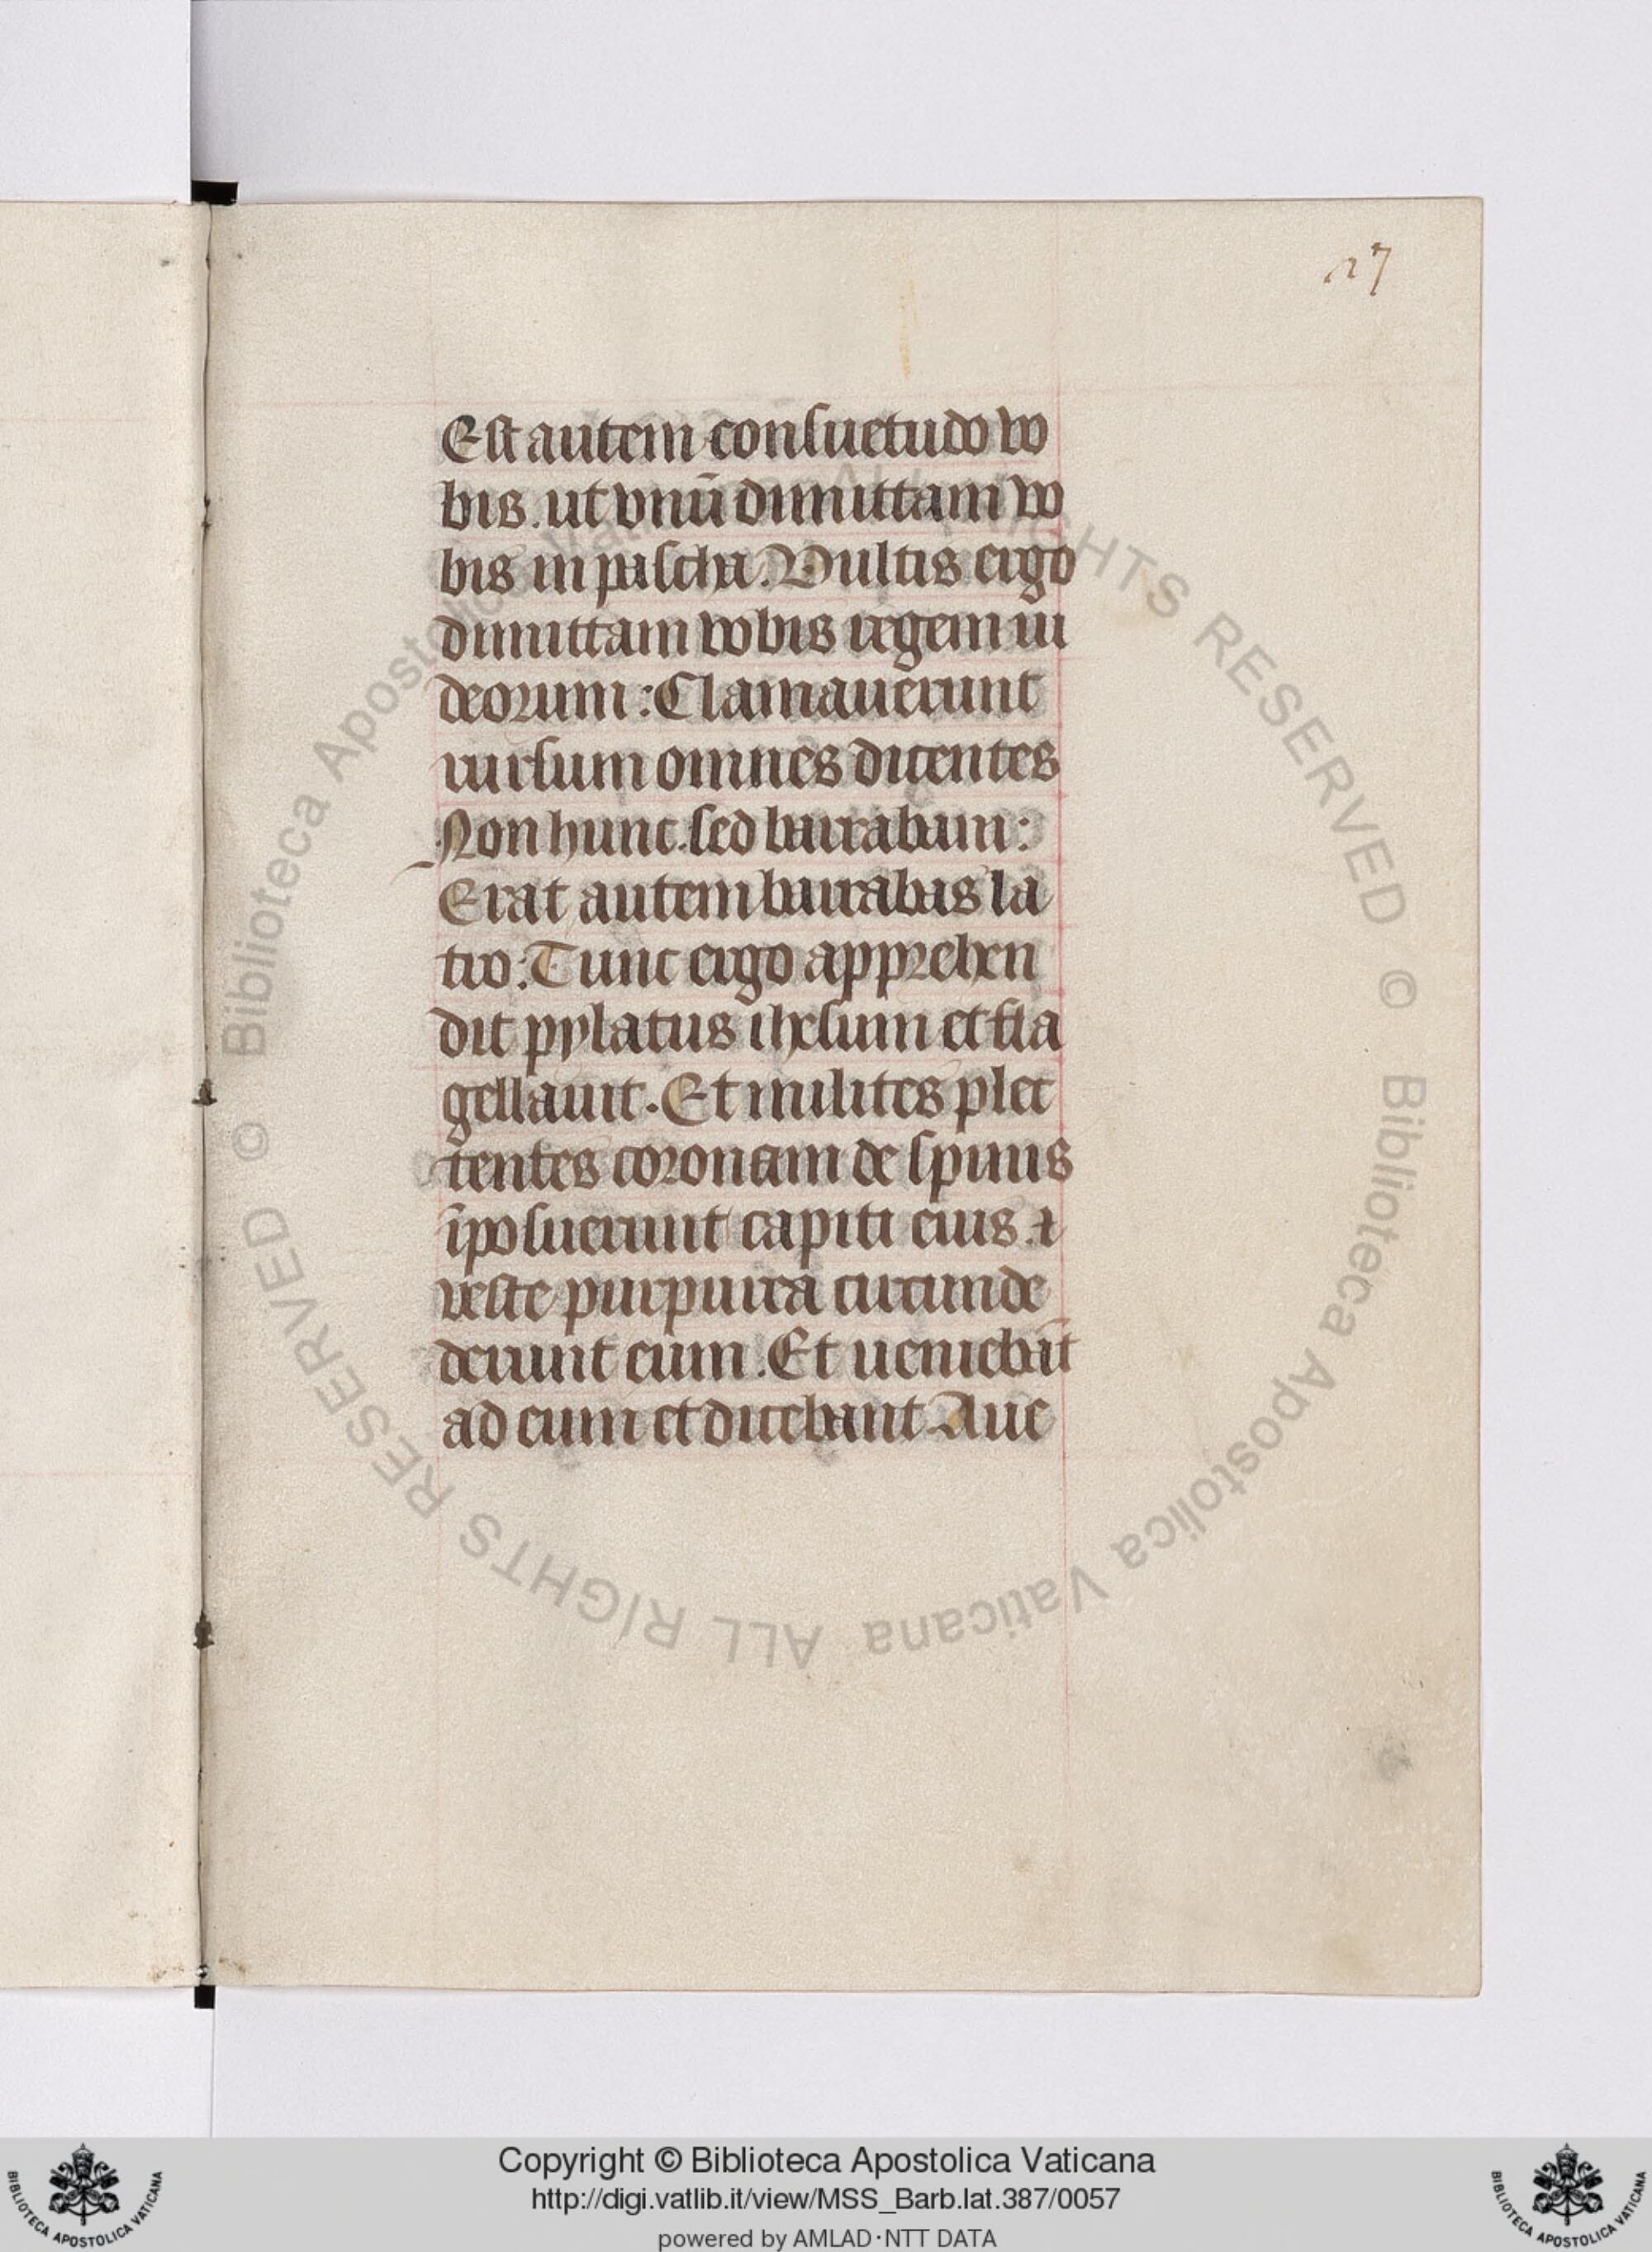 27
Est autem consuetudo vo
bis. ut vnū dimittam vo
bis in pascha. Vultis ergo
dimittam vobis regem iu
deorum: Clamauerunt
rursum omnes dicentes
Non hunc. sed barraban:
Erat autem barrabas la
tro: Tunc ergo apprehen
dit pylatus ihesum et fla
gellauit. Et milites plec
tentes coronam de spinis
īposuerunt capiti eius. ⁊
veste purpurea circunde
derunt eum. Et ueniebāt
ad eum et dicebant Aue
© Biblioteca Apostolica Vaticana ALL RIGHTS RESERVED © Biblioteca Apostolica Vaticana ALL RIGHTS RESERVED
Copyright © Biblioteca Apostolica Vaticana
http://digi.vatlib.it/view/MSS_Barb.lat.387/0057
powered by AMLAD·NTT DATA
BIBLIOTECA APOSTOLICA VATICANA
BIBLIOTECA APOSTOLICA VATICANA